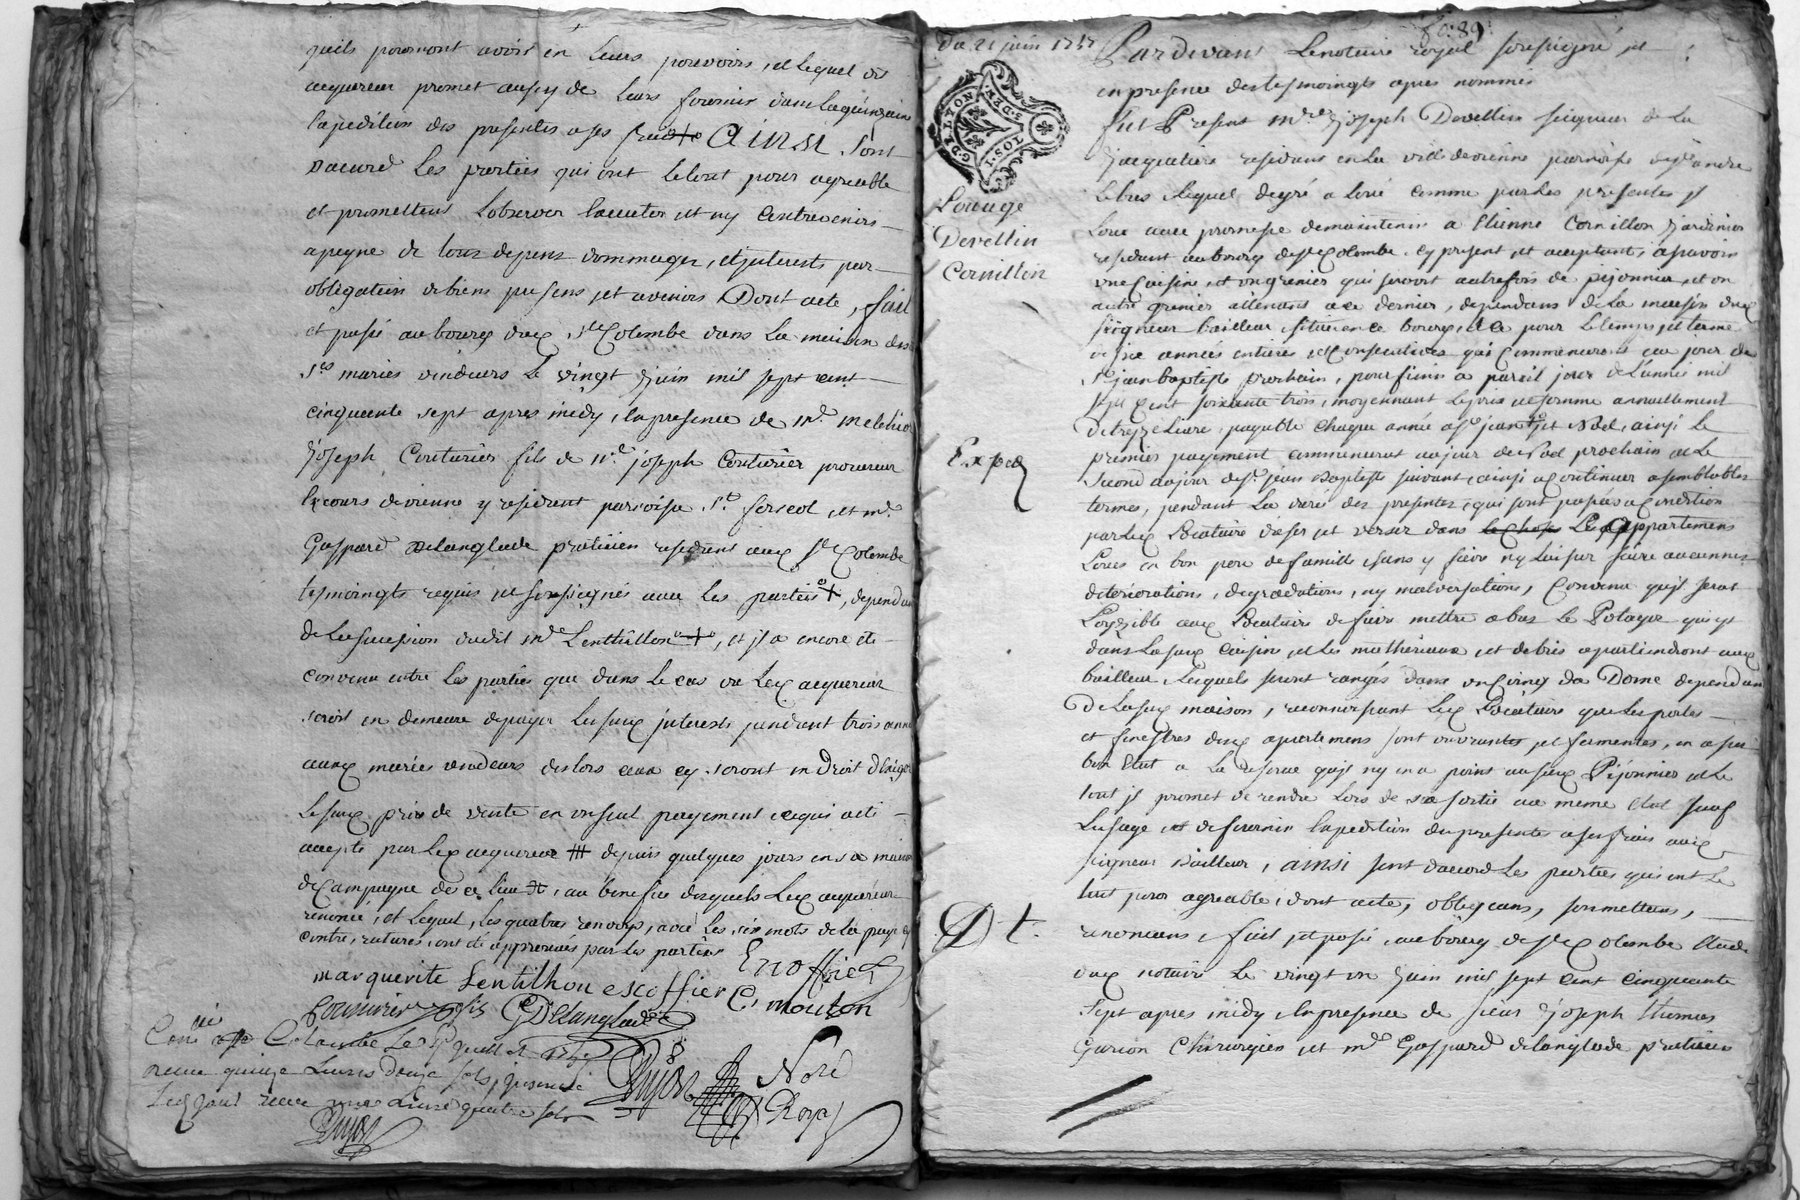 quils pourront avoir en leurs pouvoirs, et lequel dt
acquereur promet aussy de leurs fournir dans la quinzaine
lapedition des presentes a ses frais Ainsi sont
dacord les parties qui ont le tout pour agreable
et promettent lobserver lexecuter et ny contrevenir
a peyne de tous depens dommages, et jnterests par
obligation de biens presens et avenirs Dont acte, fait
et passé au bourg dud. Ste Colombe dans la maison desd.
srs mariés vendeurs le vingt juin mil sept cent
cinquante sept apres midy, en presence de mr. melchior
joseph Couturier fils de mr. joseph Couturier procureur
es cours de vienne y residant parroisse St. ferreol, et mr.
Gaspard Delanglade praticien residant aud. Ste Colombe
tesmoingts requis et soussignés avec les parties, dependant
de la succession dudit mre Lentillon, et jl a encore eté
convenu entre les parties que dans le cas ou led. acquereur
seroit en demeure de payer lesdits jnterests pendant trois années
auxd. mariés vendeurs deslors ceux cy seront en droit dexiger
lesd. prix de vente en un seul payement ce qui a eté
accepté par led. acquereur depuis quelques jours en sa maison
de campagne de ce lieu, au benefice desquels led. acquereur
renonce, et lequel, les quatres renvoys, avec les six mots de la page cy
contre, raturés ont eté approuvés par les parties
Enoffier
marguerite Lentilhon escoffier C. mouton
Couturier fils GDelanglade
Con.lé a Ste Colombe le
receu quinze livres douze sols,
receu une livre quatre sols
Dujon
Dujon Nore Royal
fo: 89:
Du 21 juin 1757
G.DE LYON
1.SOL
S.DEN.
Louage
Devellin
Cornillon
Expéd
Dt.
Pardevant le notaire royal soussigné et
en presence des tesmoingts apres nommés
fut Present mre. joseph Devellin seigneur de la
jacquetiere residant en la ville de vienne parroisse de St andré
le bas, lequel de gré a loué comme par les presentes jl
loue avec promesse de maintenir a Etienne Cornillon jardinier
residant au bourg de Ste Colombe cy present et acceptant, asavoir
une cuisine et un grenier qui servoit autrefois de pijonnier, et un
autre grenier attenant a ce dernier, dependans de la maison dud.
seigneur bailleur, située en ce bourg, et ce pour le temps et terme
de six années entieres et Consecutives qui Commenceront au jour de
St jean baptiste prochain, pour finir a pareil jour de l'année mil
sept cent soixante trois, moyennant le prix et somme annuellement
de treyze livres, payable chaque année a St jean et Noel, ainsi le
premier payement commencerat au jour de Noel prochain et le
second au jour de St jean Baptiste suivant, ainsi a continuer a semblables
termes, pendant la durée des presentes, qui sont passées a condition
par led. Locataire d'user et verser dans le chose Les appartemens
Loués en bon pere de famille, sans y faire ny laisser faire aucunnes
deteriorations, degradations, ny malversations, Convenu quil serat
Loysible aud. Locataire de faire mettre a bas le Potager qui est
dans lad. cuisine, et les matheriaux et debris apartiendront aud.
bailleur, lesquels seront rangés dans un coing de Dome dependant
De lad. maison, reconnoissant led. Locataire que les portes
et finestres dud. apartemens sont ouvrantes et fermantes, en assez
bon Etat a la reserve quil ny en a point audit Pijonnier et le
tout jl promet de rendre lors de sa sortie au meme Etat sauf
lusage, et de fournir lapedition des presentes a ses frais aud.
seigneur Bailleur, ainsi sont dacord les parties qui ont le
tout pour agreable, dont acte, obligeans, soumettans,
renonceans, fait et passé, au bourg de Ste Colombe Etude
dud. notaire le vingt un juin mil sept cent cinquante
sept apres midy, en presence de sieur joseph thomas
Garion Chirurgien et mr. Gaspard delanglade praticien